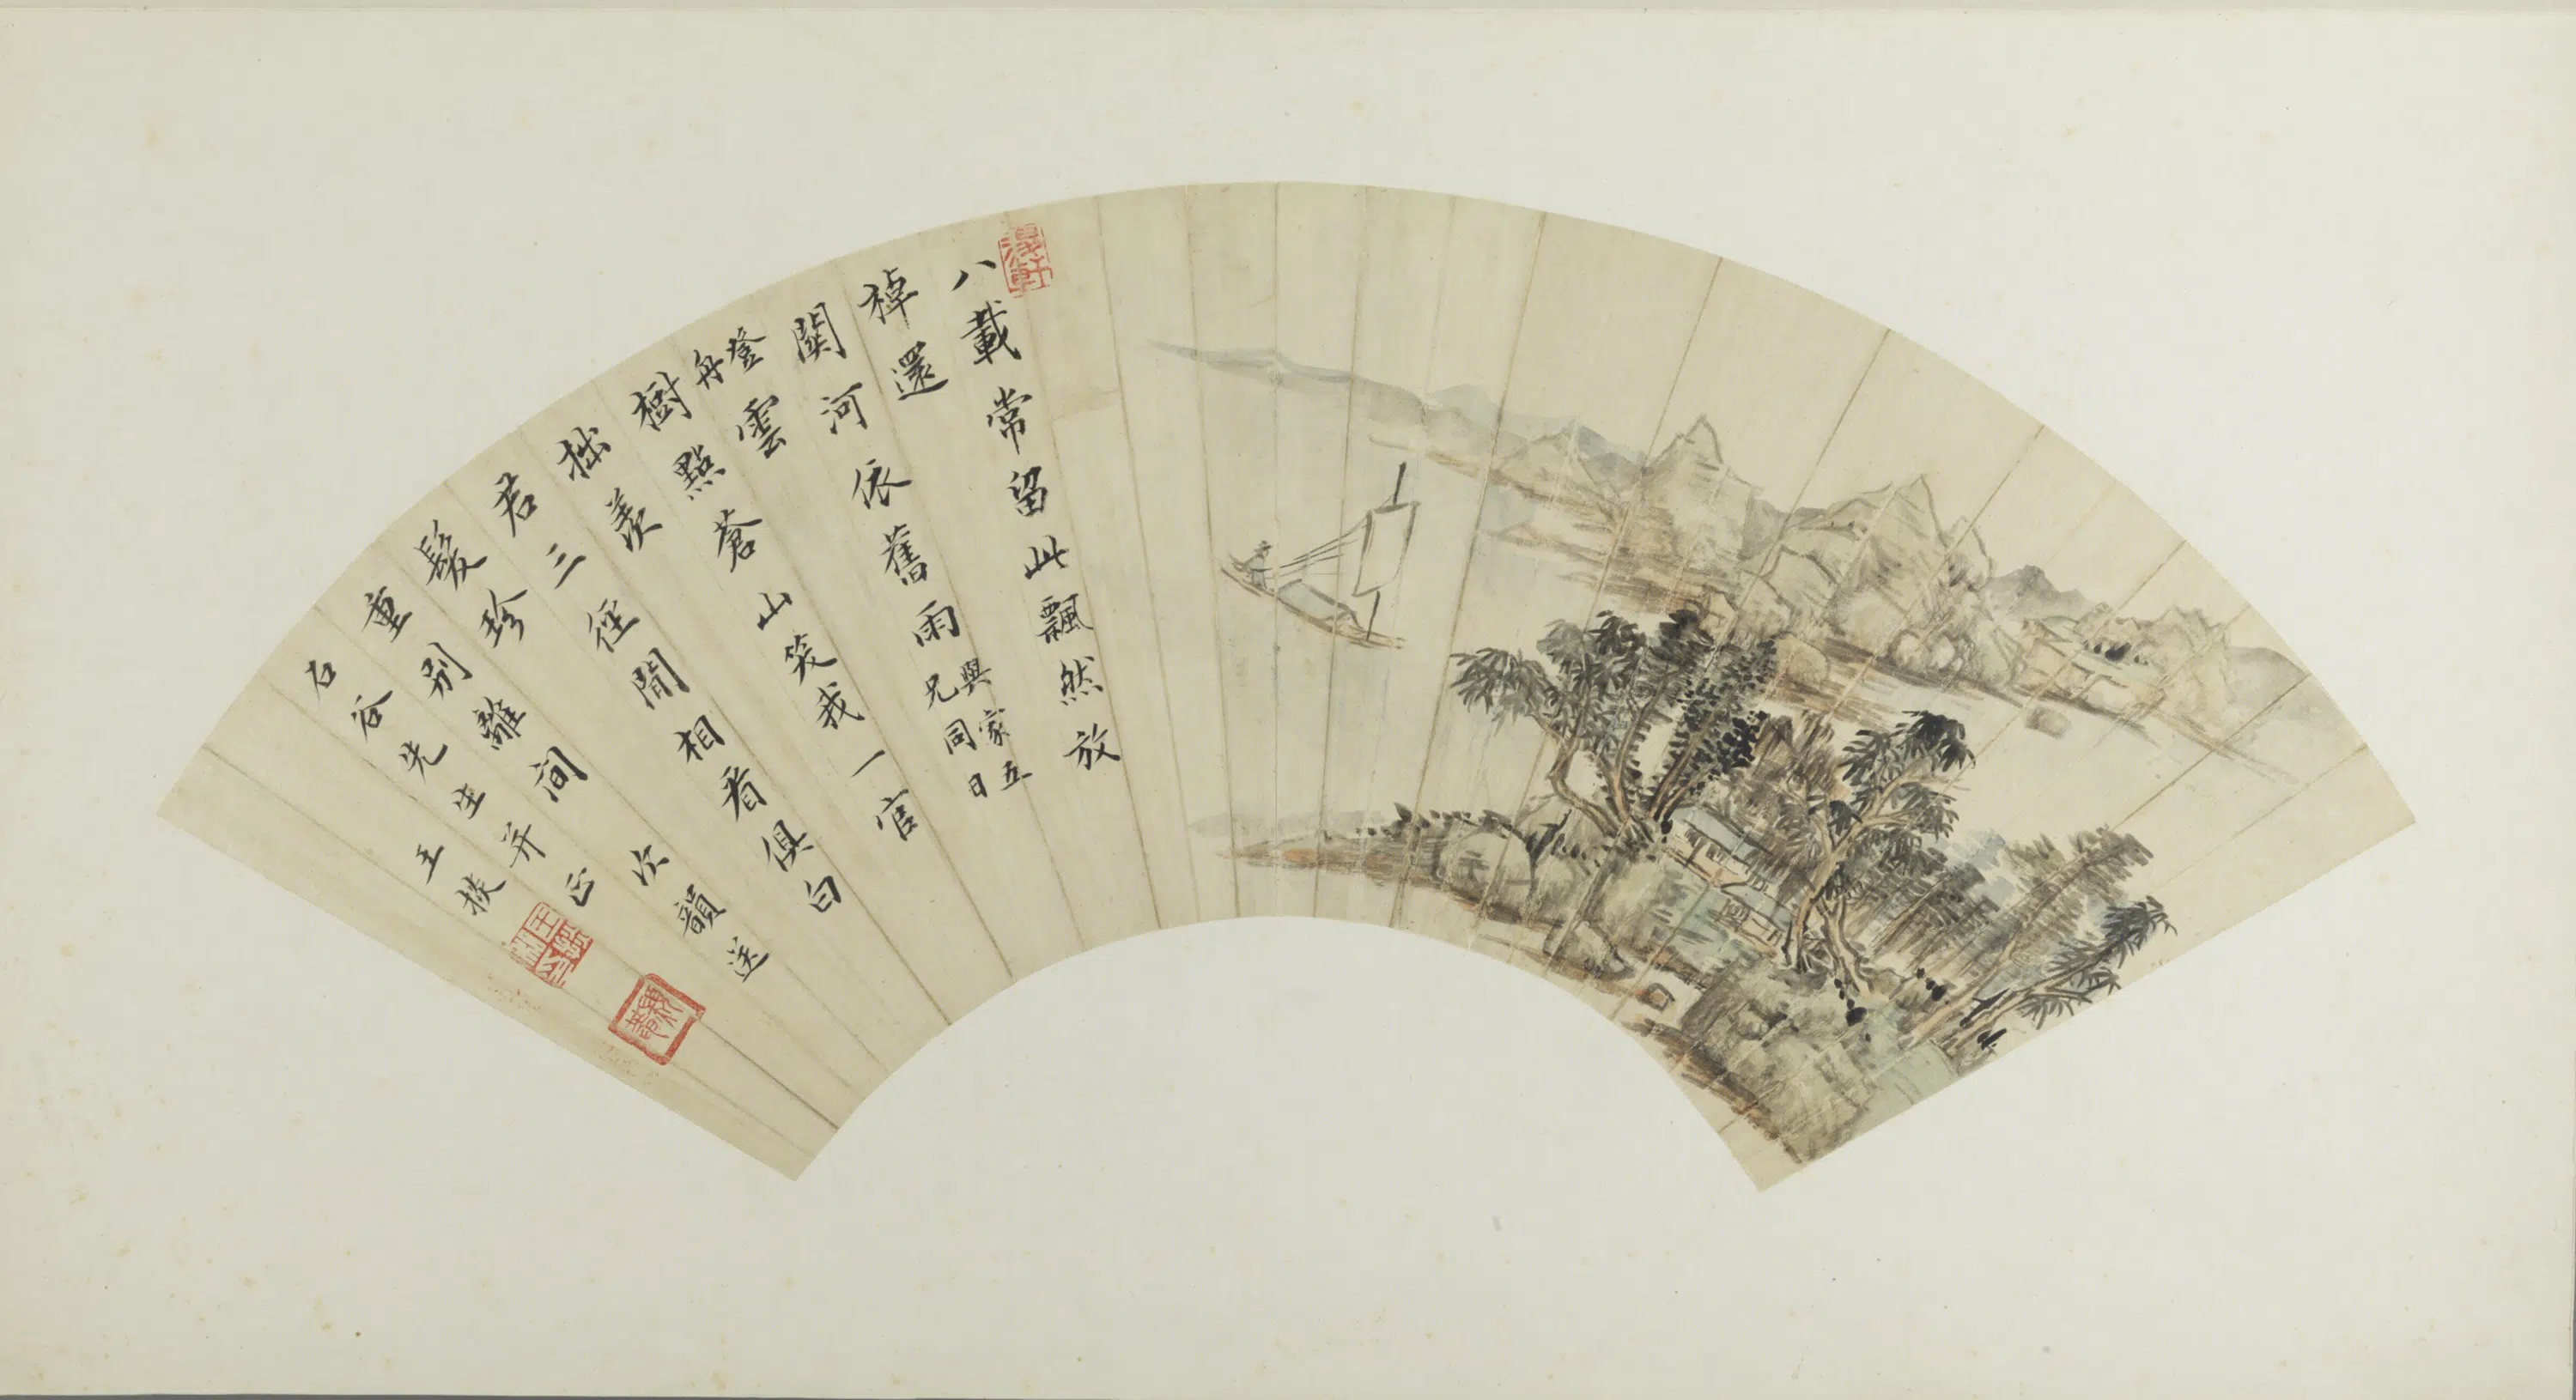 八載常留此飄然放
棹還
關河依舊雨與家五兄同日
登舟雲
樹點蒼山笑我一官
拙羨
君三徑閒相看俱白
髮珍
重別離間 次韻送
石谷先生并正
王掞